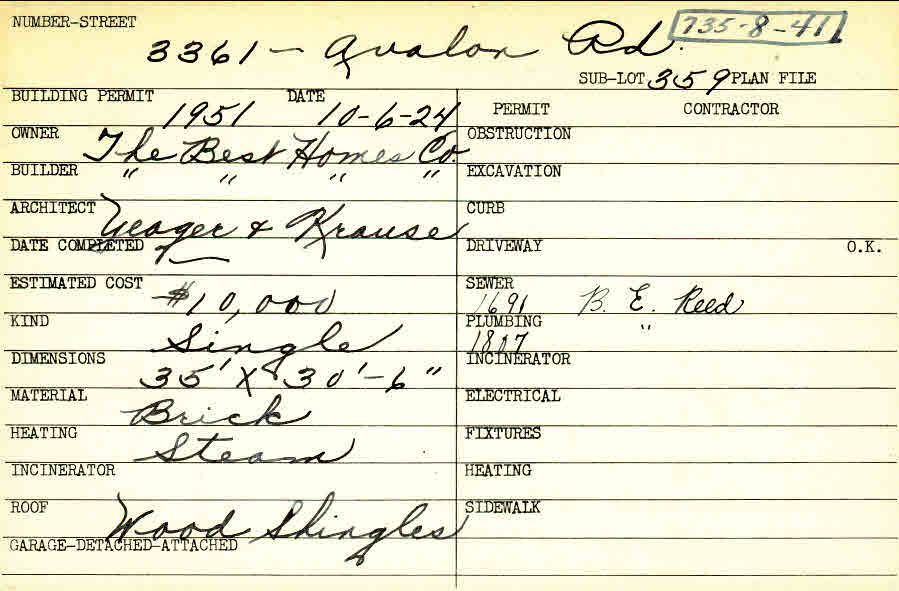 NUMBER-STREET
3361 - Avalon Rd. 735-8-41
SUB-LOT 359 PLAN FILE
BUILDING PERMIT 1951 DATE 10-6-24
PERMIT CONTRACTOR
OWNER The Best Homes Co.
OBSTRUCTION
BUILDER " " " "
EXCAVATION
ARCHITECT Yeager & Krause
CURB
DATE COMPLETED
DRIVEWAY O.K.
ESTIMATED COST $10,000
SEWER 1691 B. E. Reed
KIND Single
PLUMBING 1807 "
DIMENSIONS 35' X 30'-6"
INCINERATOR
MATERIAL Brick
ELECTRICAL
HEATING Steam
FIXTURES
INCINERATOR
HEATING
ROOF Wood Shingles
SIDEWALK
GARAGE-DETACHED-ATTACHED